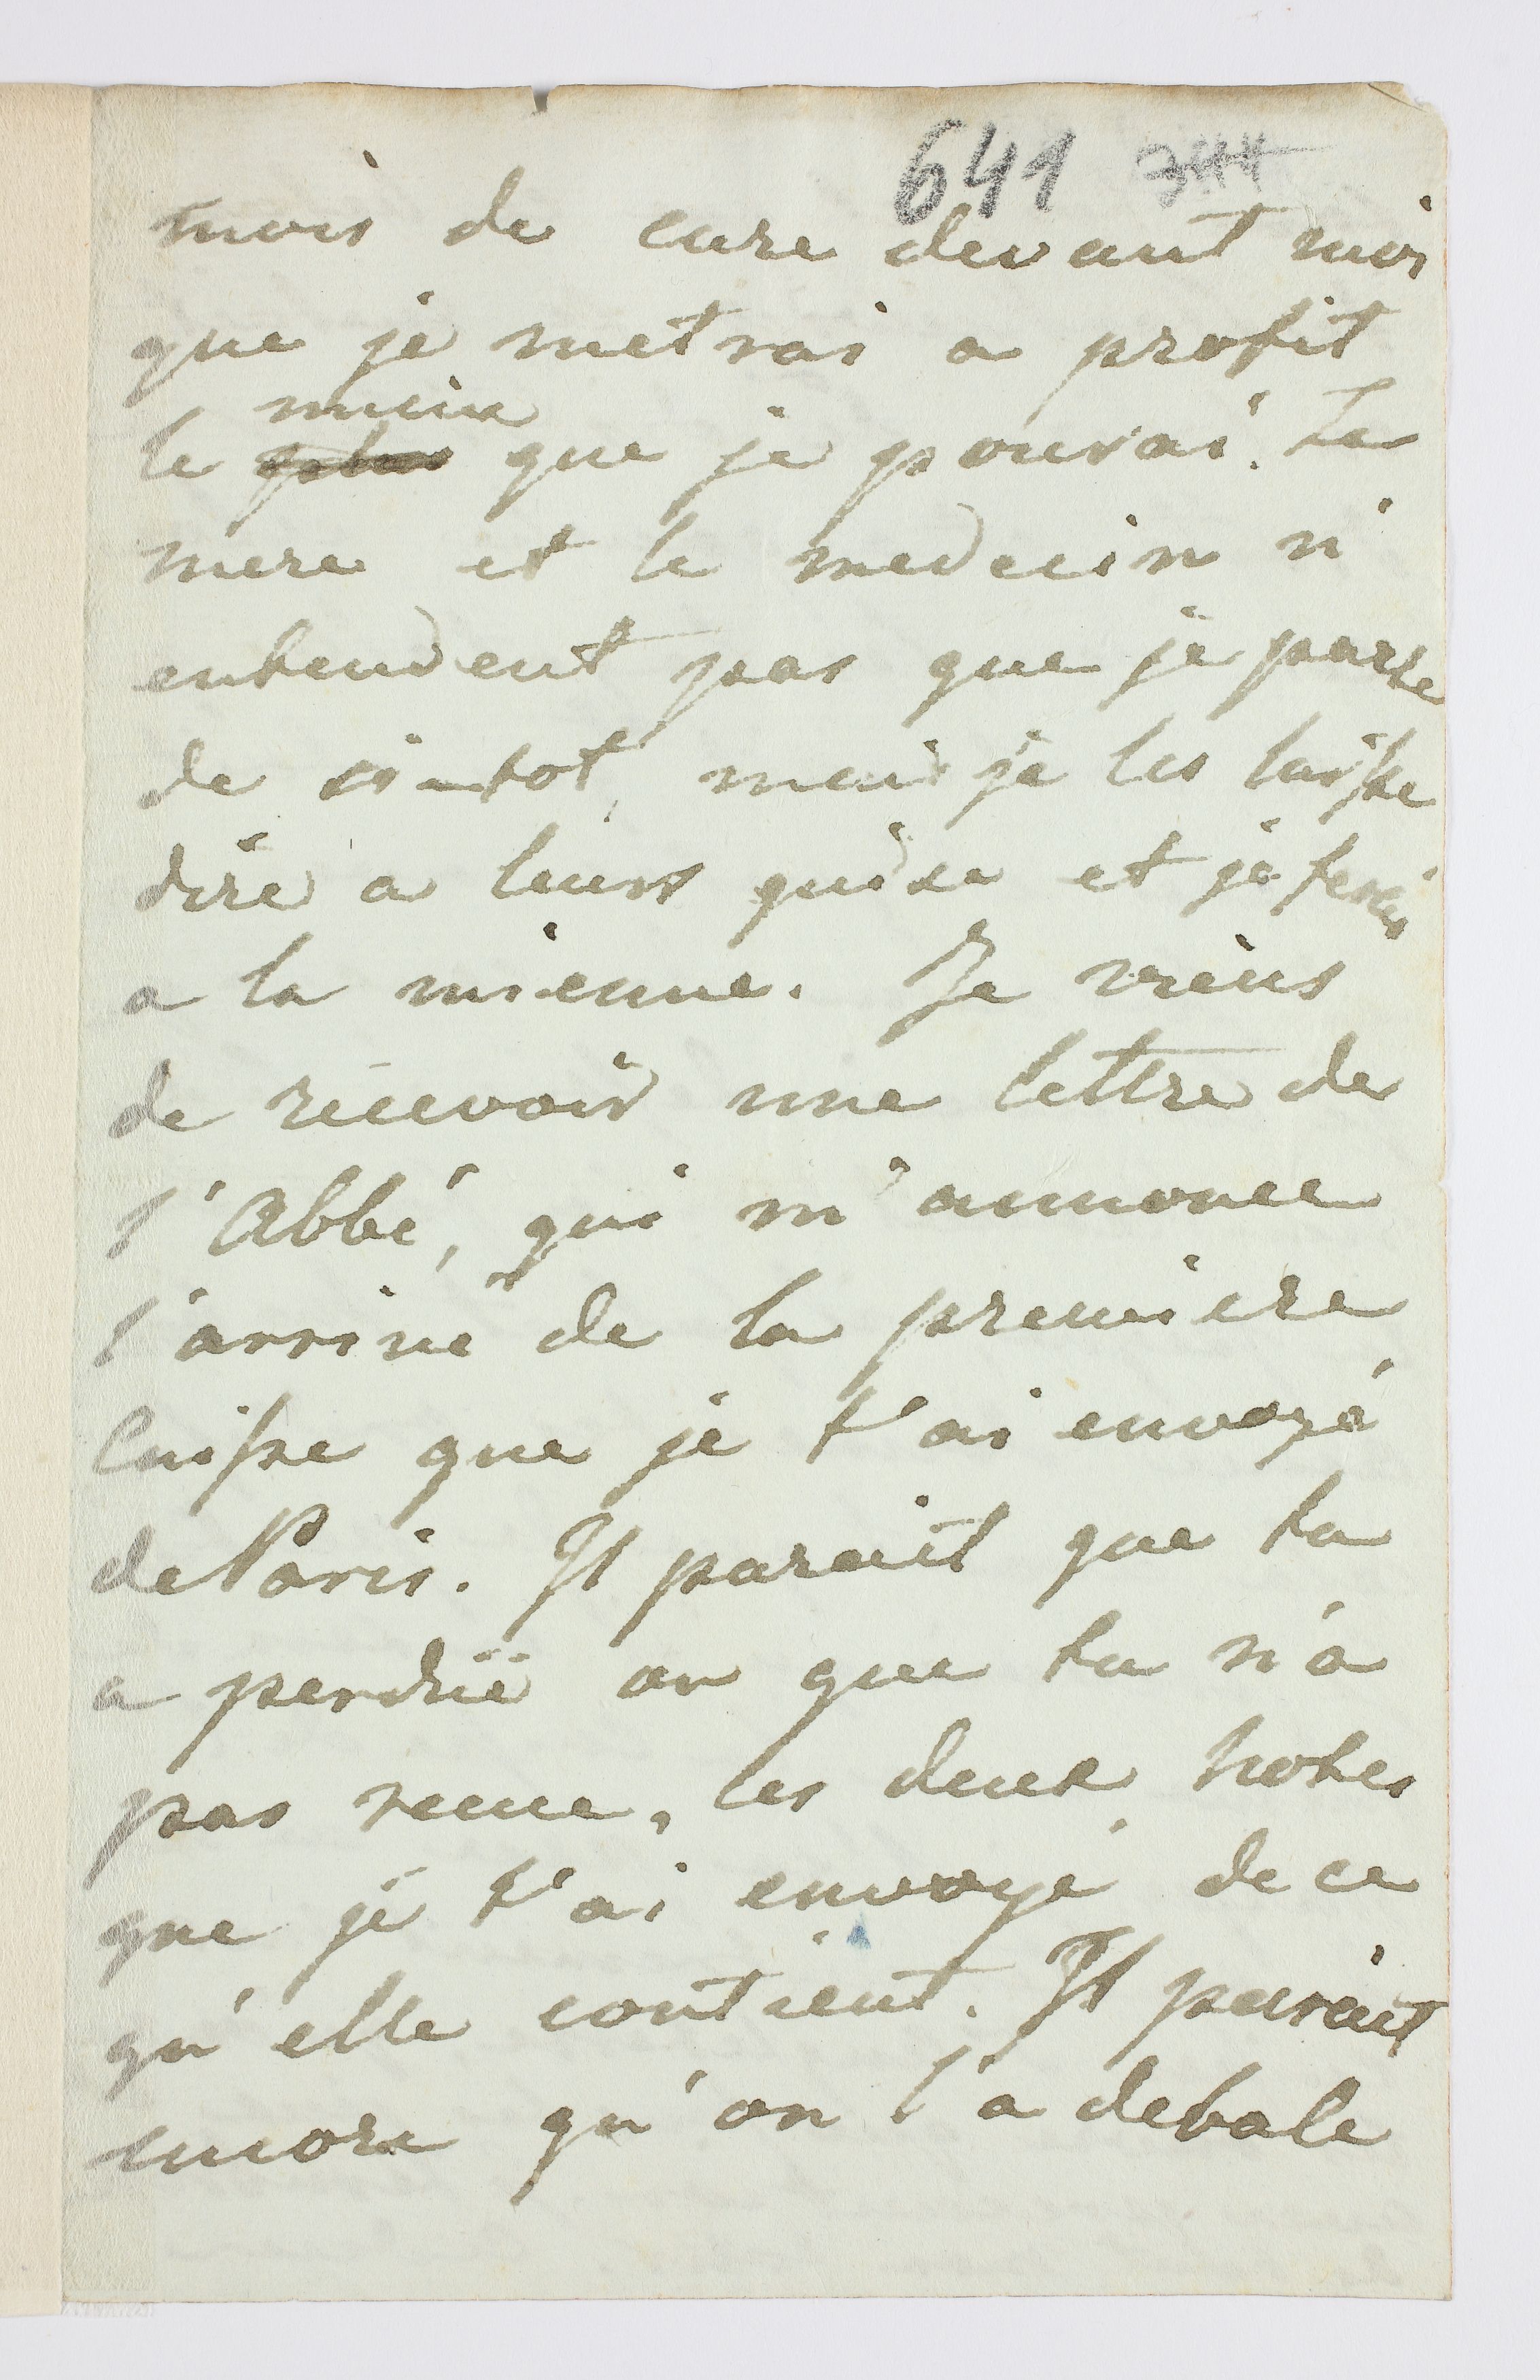 641 344
mois de cure devant moi
que je metrai a profit
mieux
le plus que je pourai. ta
mere et le medecin n'
entendent pas que je parte
de si-tot, mais je les laisse
dire a leurs guise et je ferai
a la mienne. Je viens
de recevoir une lettre de
l'Abbé, qui m'annonce
l'arrivé de la premiere
Caisse que je t'ai envoyé
de Paris. Il parait que tu
a perdüe ou que tu n'a
pas recue, les deux notes
que je t'ai envoyé de ce
qu'elle contient. Il parait
encore qu'on l'a debale